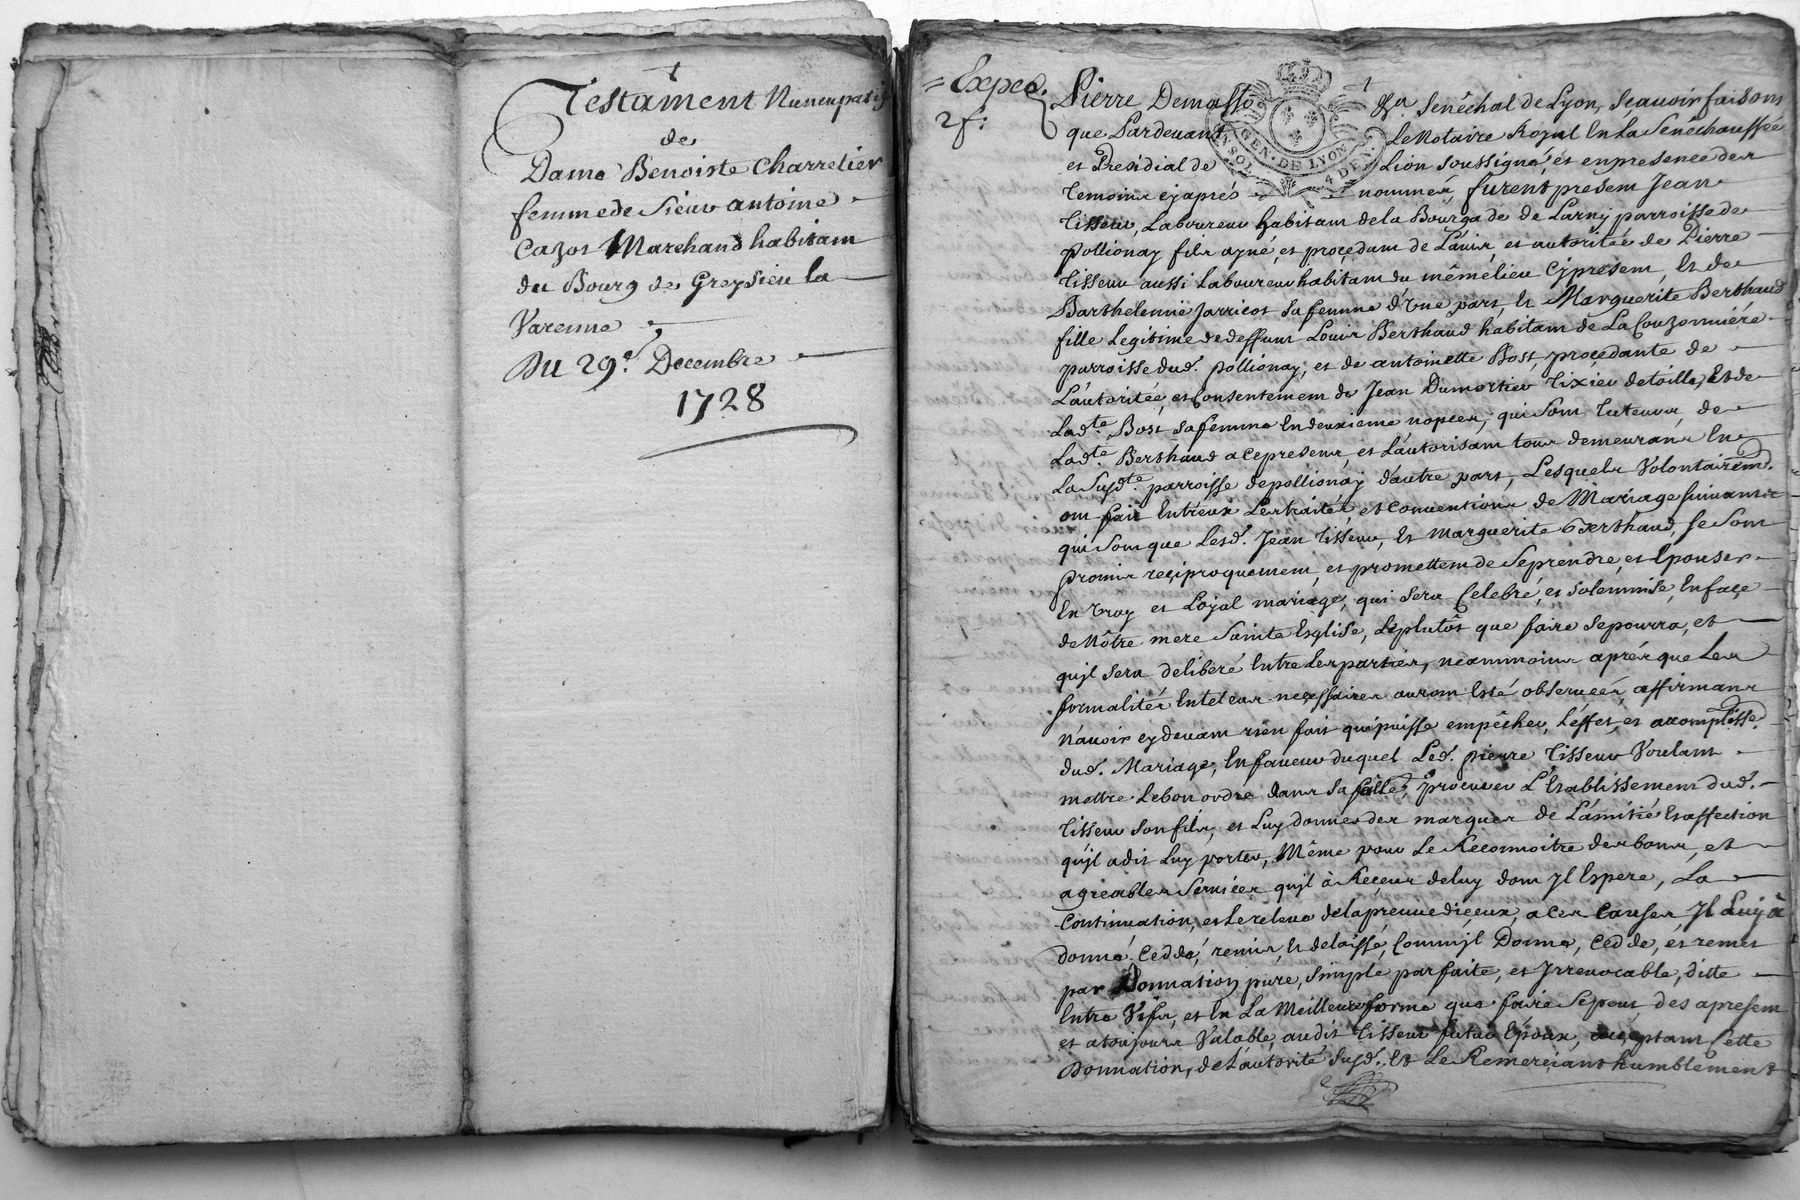 Testament Nuncupatif
de
Dame Benoiste Charretier
femme de Sieur antoine
Cazot Marchand habitant
du Bourg de Greysieu la
Varenne
Du 29e. Decembre
1728
Exped.
2 f:
Pierre Demasso &a. Senêchal de Lyon, Scauoir faisons
que Pardeuant Le Notaire Royal En La Senêchaussée
et Presidial de Lion soussigné, et en presence des
temoins cy aprés nommés, furent present Jean
Tisseur, Laboureur habitant de la Bourgade de Larny parroisse de
pollionay fils ayné, et proçedant de L'auis et autoritée de Pierre
Tisseur aussi Laboureur habitant du mêmé lieu cy present, Et de
Barthelemie Jarricot sa femme d'Vne part, Et Marguerite Berthaud
fille Legitime de deffunt Louis Berthaud habitant de La Couzonniére
parroisse dud. pollionay, et de antoinette Bost, proçedante de
L'autoritée, et Consentement de Jean Dumortier Tixier de toille, Et de
Lad.te Bost sa femme En deuxieme nopces, qui sont tuteurs de
Lad.te Berthaud a ce presens, et L'autorisant tous demeurans En
La Susd.te parroisse de pollionay d'autre part, Lesquels Volontairemt.
ont fait Entreux Les traités, et Conuentions de Mariage suiuants
qui sont que Lesd. Jean Tisseur, Et marguerite Berthaud, se sont
promis reçiproquement, et promettent de Se prendre, et Epouser
En Vray et Loyal mariage, qui sera Celebré, et Solemnisé, En façe
de Nôtre mere Sainte Esglise, Le plutôt que faire se pourra, et
quil sera deliberé Entre Les parties, neammoins aprés que Les
formalités En tel cas neçessaires auront Esté obseruées, affirmans
n'auoir cy deuant rien fait qui puisse empêcher, L'effet, et accomplisse.
dud. Mariage, En faueur duquel Led. pierre Tisseur Voulant
mettre Le bon ordre dans sa fille, procurer L'Etablissement dud.
Tisseur son fils, et Luy donner des marques de L'amitié Et affection
qu'jl a dit Luy porter, Même pour Le Reconnoitre des bons, et
agreables Seruices qu'jl à Reçeus de luy dont Jl Espere, La
Continuation, et Le releue de la preuue diçeux, a ces Causes Jl Luy à
donné, Ceddé, remis, Et delaissé, Comm'jl Donne, Cedde, et remet
par Donnation pure, Simple parfaite, et Jrreuocable, ditte
Entre Vifs, et En La Meilleure forme que faire Se peut, des apresent
et a toujours Valable, audit Tisseur futur Epoux, acceptant Cette
Donnation, de L'autorité Susd., Et Le Remerciant humblement
GEN. DE LYON
4 DEN.